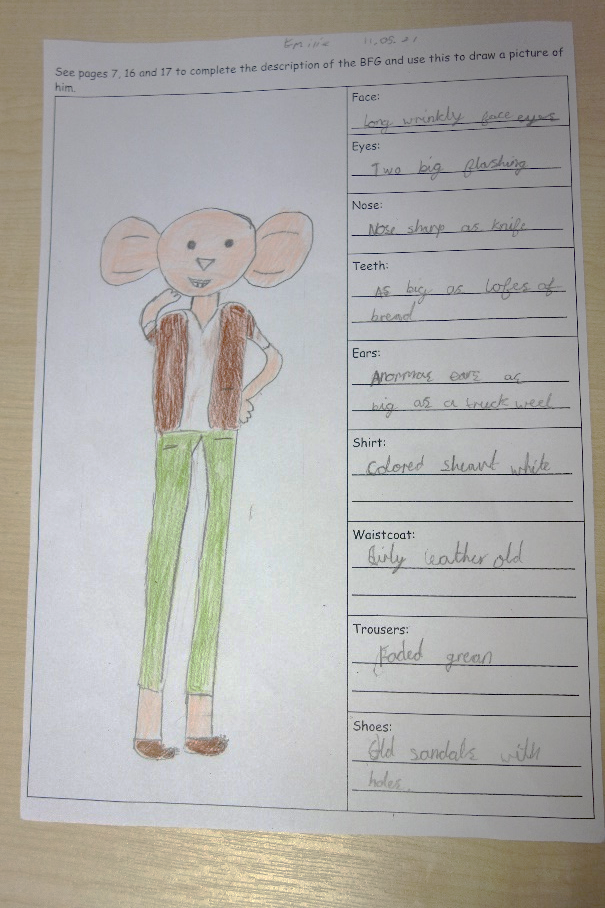 Emilie 11.05.21
See pages 7, 16 and 17 to complete the description of the BFG and use this to draw a picture of
him.
Face:
Long wrinkly face eyes
Eyes:
Two big flashing
Nose:
Nose sharp as knife
Teeth:
As big as lofes of
bread
Ears:
Anormas ears as
big as a truck weel
Shirt:
Colored sheart white
Waistcoat:
Dirly leather old
Trousers:
Faded grean
Shoes:
Old sandals with
holes.